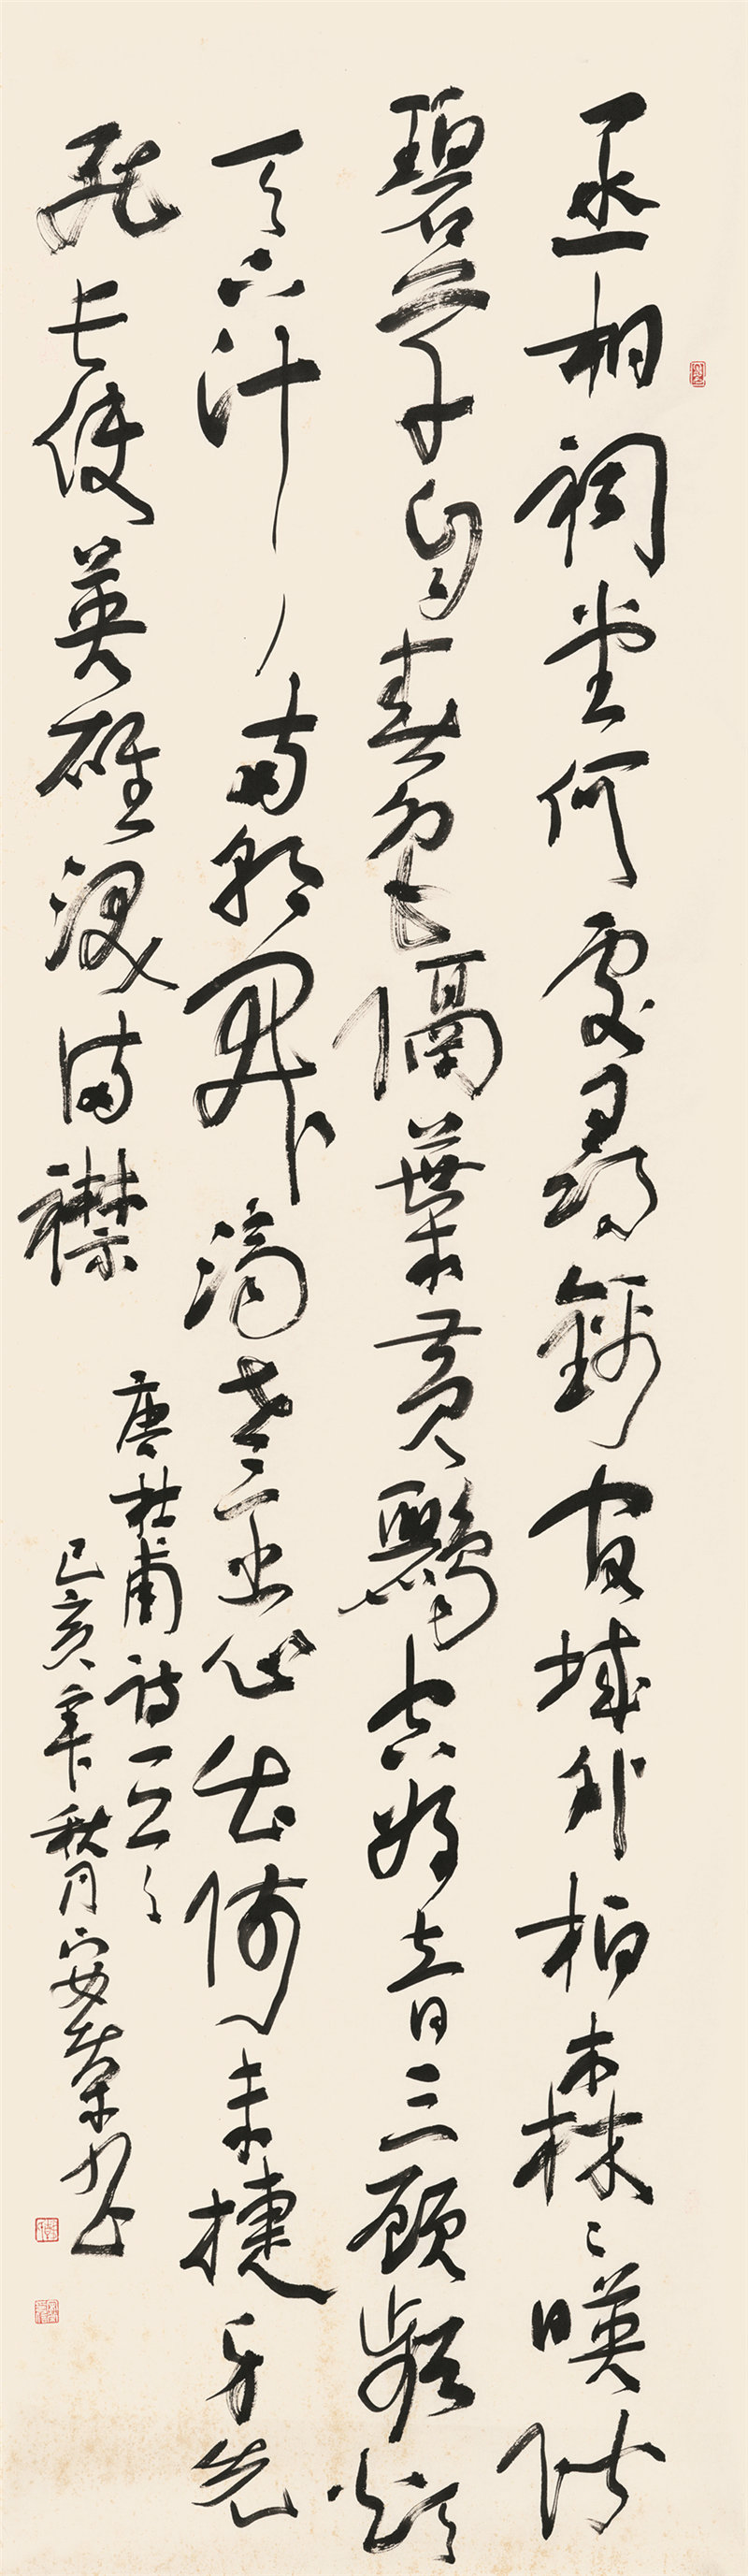 丞相祠堂何處尋錦官城外柏森々暎階
碧草自春色隔葉黃鸝空好音三顧頻煩
天下計兩朝開濟老臣心出師未捷身先
死長使英雄淚滿襟
唐杜甫詩一首
己亥年秋月